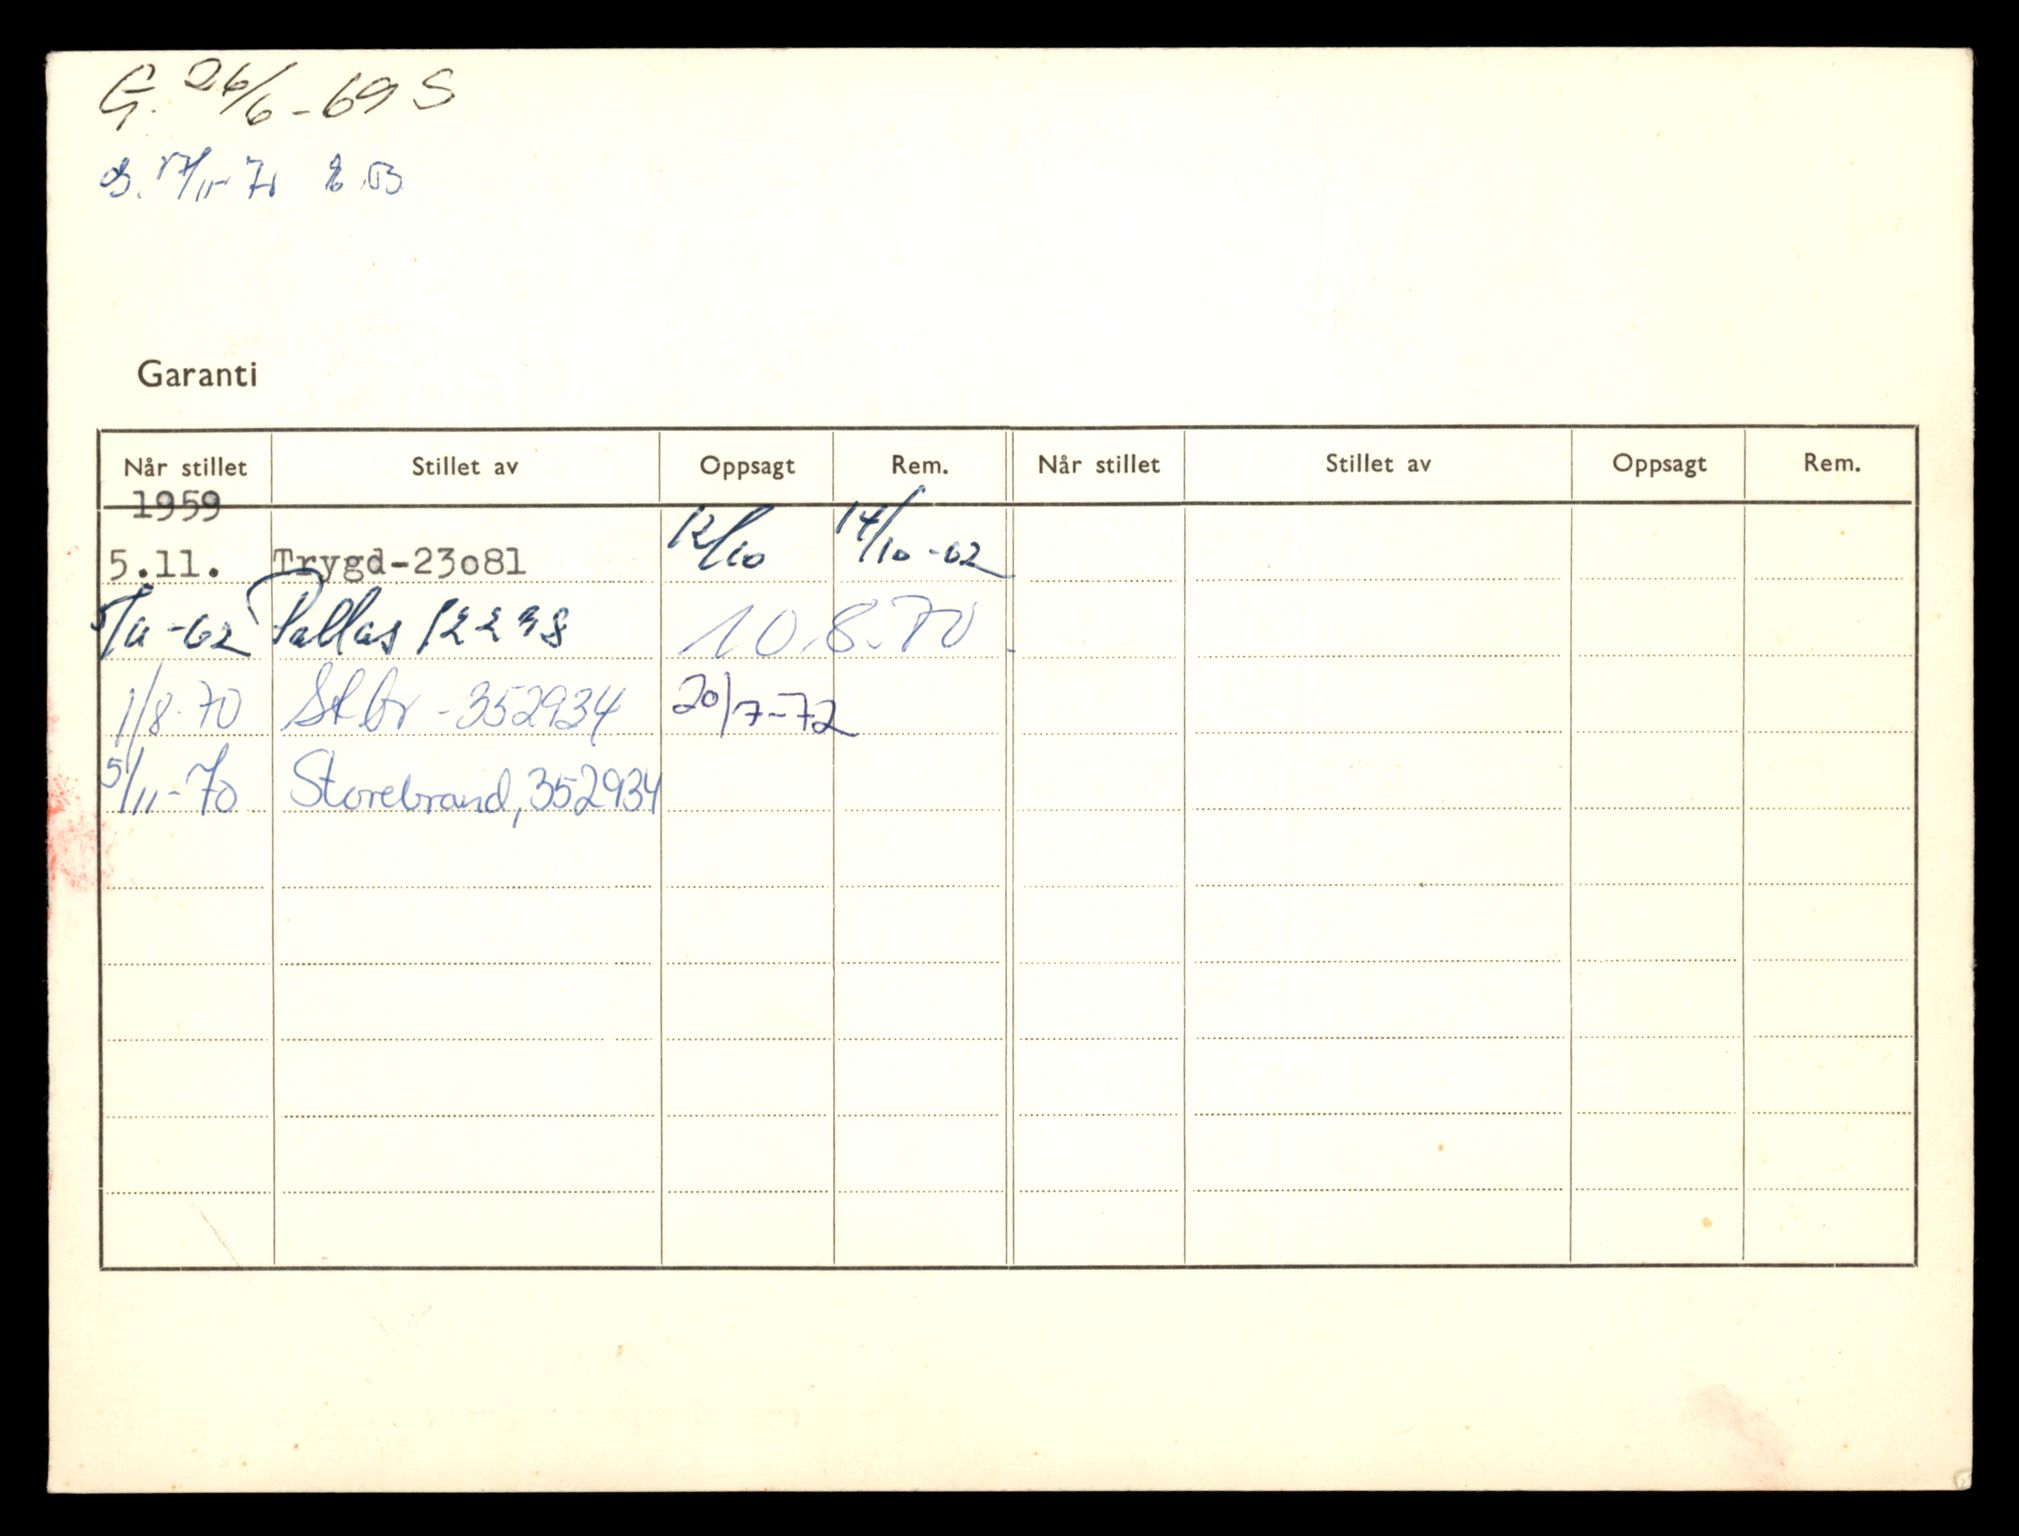 G. 26/6-69 S
17/11-70
Garanti
Når stillet Stillet av Oppsagt Rem. Når stillet Stillet av Oppsagt Rem.
1959
5.11. Trygd-23081 12/10 14/10-62
5/11-62 Pallas 10.8.70
1/8-70 Stbr - 352934 20/7-72
5/11-70 Storebrand, 352934